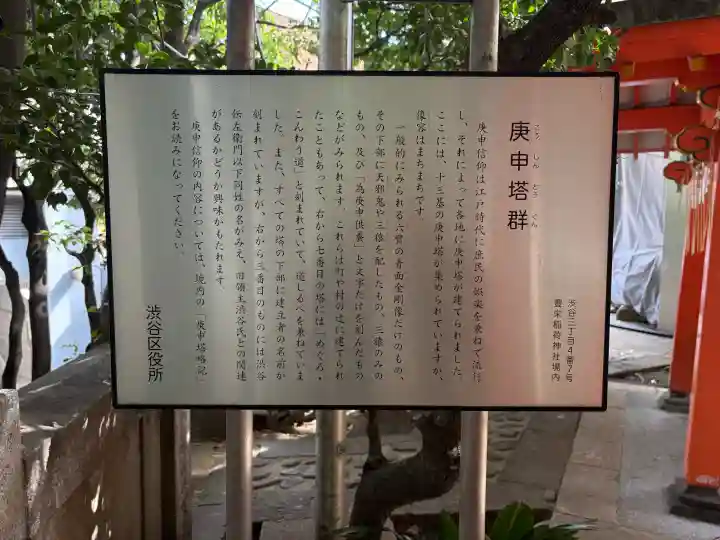 庚申塔群
こう しん とう ぐん
渋谷三丁目4番7号
豊栄稲荷神社境内
庚申信仰は江戸時代に庶民の娯楽を兼ねて流行
し、それによって各地に庚申塔が建てられました。
ここには、十三基の庚申塔が集められていますが、
像容はまちまちです。
一般的にみられる六臂の青面金剛像だけのもの、
その下部に天邪鬼や三猿を配したもの、三猿のみの
もの、及び「為庚申供養」と文字だけを刻んだもの
などがみられます。これらは町や村の辻に建てられ
たこともあって、右から七番目の塔には「めぐろ・
こんわう道」と刻まれていて、道しるべを兼ねていま
した。また、すべての塔の下部に建立者の名前が
刻まれていますが、右から三番目のものには渋谷
伝左衛門以下同姓の名がみえ、旧領主渋谷氏との関連
があるかどうか興味がもたれます。
庚申信仰の内容については、境内の「庚申塔略記」
をお読みになってください。
渋谷区役所